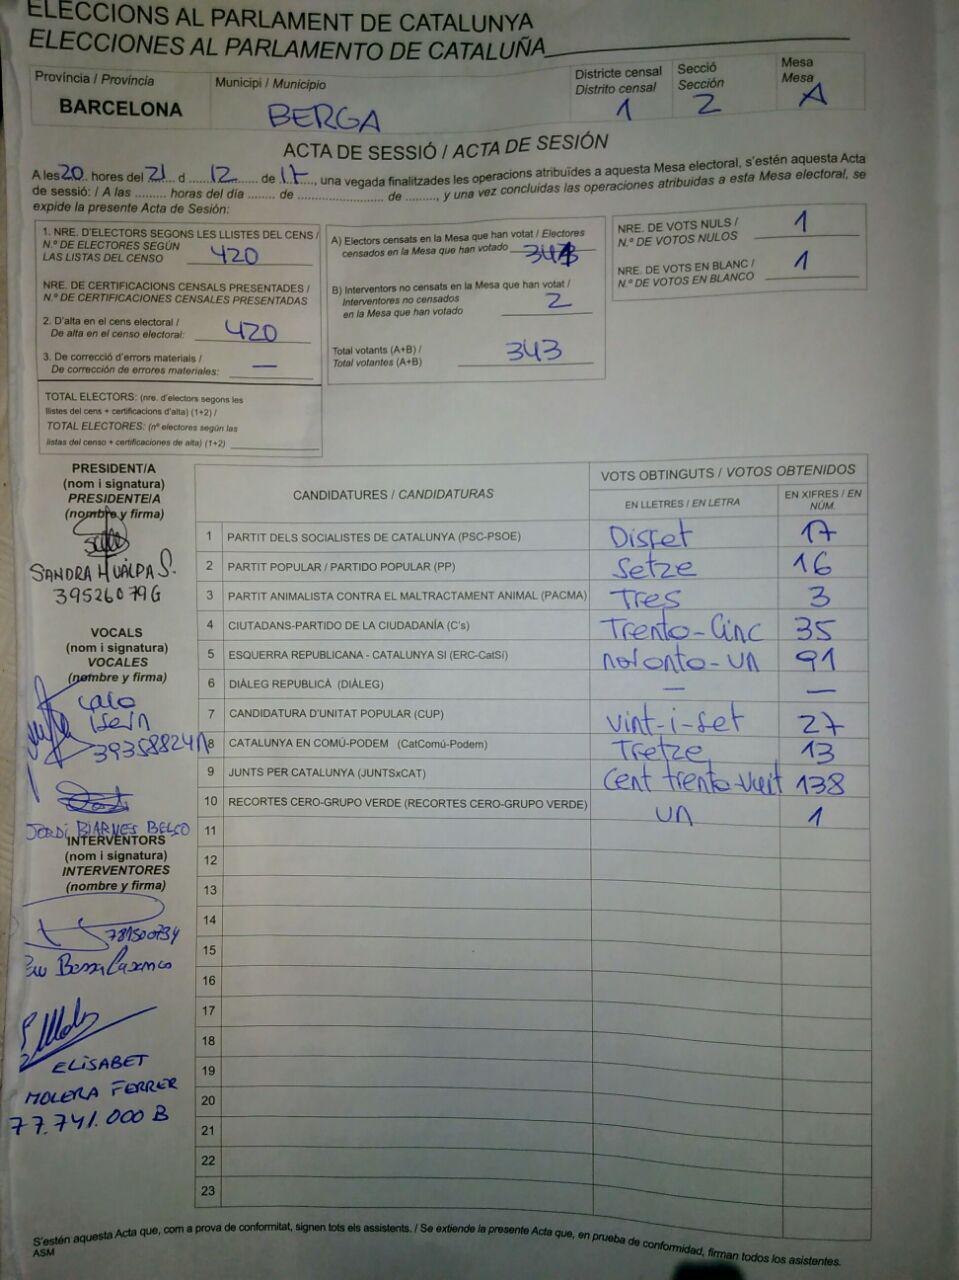 ELECCIONS AL PARLAMENT DE CATALUNYA
ELECCIONES AL PARLAMENTO DE CATALUÑA
Província / Provincia
BARCELONA
Municipi / Municipio
BERGA
Districte censal
Distrito censal
1
Secció
Sección
2
Mesa
Mesa
A
ACTA DE SESSIÓ / ACTA DE SESIÓN
A les 20 hores del 21 d 12 de 17, una vegada finalitzades les operacions atribuïdes a aquesta Mesa electoral, s'estén aquesta Acta
de sessió: / A las ......... horas del día ........ de ........................ de ........, y una vez concluidas las operaciones atribuidas a esta Mesa electoral, se
expide la presente Acta de Sesión:
1. NRE. D'ELECTORS SEGONS LES LLISTES DEL CENS /
N.º DE ELECTORES SEGÚN
LAS LISTAS DEL CENSO 420
NRE. DE CERTIFICACIONS CENSALS PRESENTADES /
N.º DE CERTIFICACIONES CENSALES PRESENTADAS
2. D'alta en el cens electoral /
De alta en el censo electoral: 420
3. De correcció d'errors materials /
De corrección de errores materiales: —
TOTAL ELECTORS: (nre. d'electors segons les
llistes del cens + certificacions d'alta) (1+2) /
TOTAL ELECTORES: (nº electores según las
listas del censo + certificaciones de alta) (1+2)
A) Electors censats en la Mesa que han votat / Electores
censados en la Mesa que han votado 341
B) Interventors no censats en la Mesa que han votat /
Interventores no censados
en la Mesa que han votado 2
Total votants (A+B) /
Total votantes (A+B) 343
NRE. DE VOTS NULS /
N.º DE VOTOS NULOS 1
NRE. DE VOTS EN BLANC /
N.º DE VOTOS EN BLANCO 1
PRESIDENT/A
(nom i signatura)
PRESIDENTE/A
(nombre y firma)
SANDRA HUALPA S.
39526079G
VOCALS
(nom i signatura)
VOCALES
(nombre y firma)
39358824
JORDI BIARNES
INTERVENTORS
(nom i signatura)
INTERVENTORES
(nombre y firma)
ELISABET
MOLERA FERRER
77.741.000 B
CANDIDATURES / CANDIDATURAS
VOTS OBTINGUTS / VOTOS OBTENIDOS
EN LLETRES / EN LETRA
EN XIFRES / EN
NÚM.
1 PARTIT DELS SOCIALISTES DE CATALUNYA (PSC-PSOE) Disset 17
2 PARTIT POPULAR / PARTIDO POPULAR (PP) Setze 16
3 PARTIT ANIMALISTA CONTRA EL MALTRACTAMENT ANIMAL (PACMA) Tres 3
4 CIUTADANS-PARTIDO DE LA CIUDADANÍA (C's) Trenta-Cinc 35
5 ESQUERRA REPUBLICANA - CATALUNYA SÍ (ERC-CatSí) noranta-un 91
6 DIÀLEG REPUBLICÀ (DIÀLEG) — —
7 CANDIDATURA D'UNITAT POPULAR (CUP) vint-i-set 27
8 CATALUNYA EN COMÚ-PODEM (CatComú-Podem) Tretze 13
9 JUNTS PER CATALUNYA (JUNTSxCAT) Cent trenta-vuit 138
10 RECORTES CERO-GRUPO VERDE (RECORTES CERO-GRUPO VERDE) UN 1
11
12
13
14
15
16
17
18
19
20
21
22
23
S'estén aquesta Acta que, com a prova de conformitat, signen tots els assistents. / Se extiende la presente Acta que, en prueba de conformidad, firman todos los asistentes.
ASM